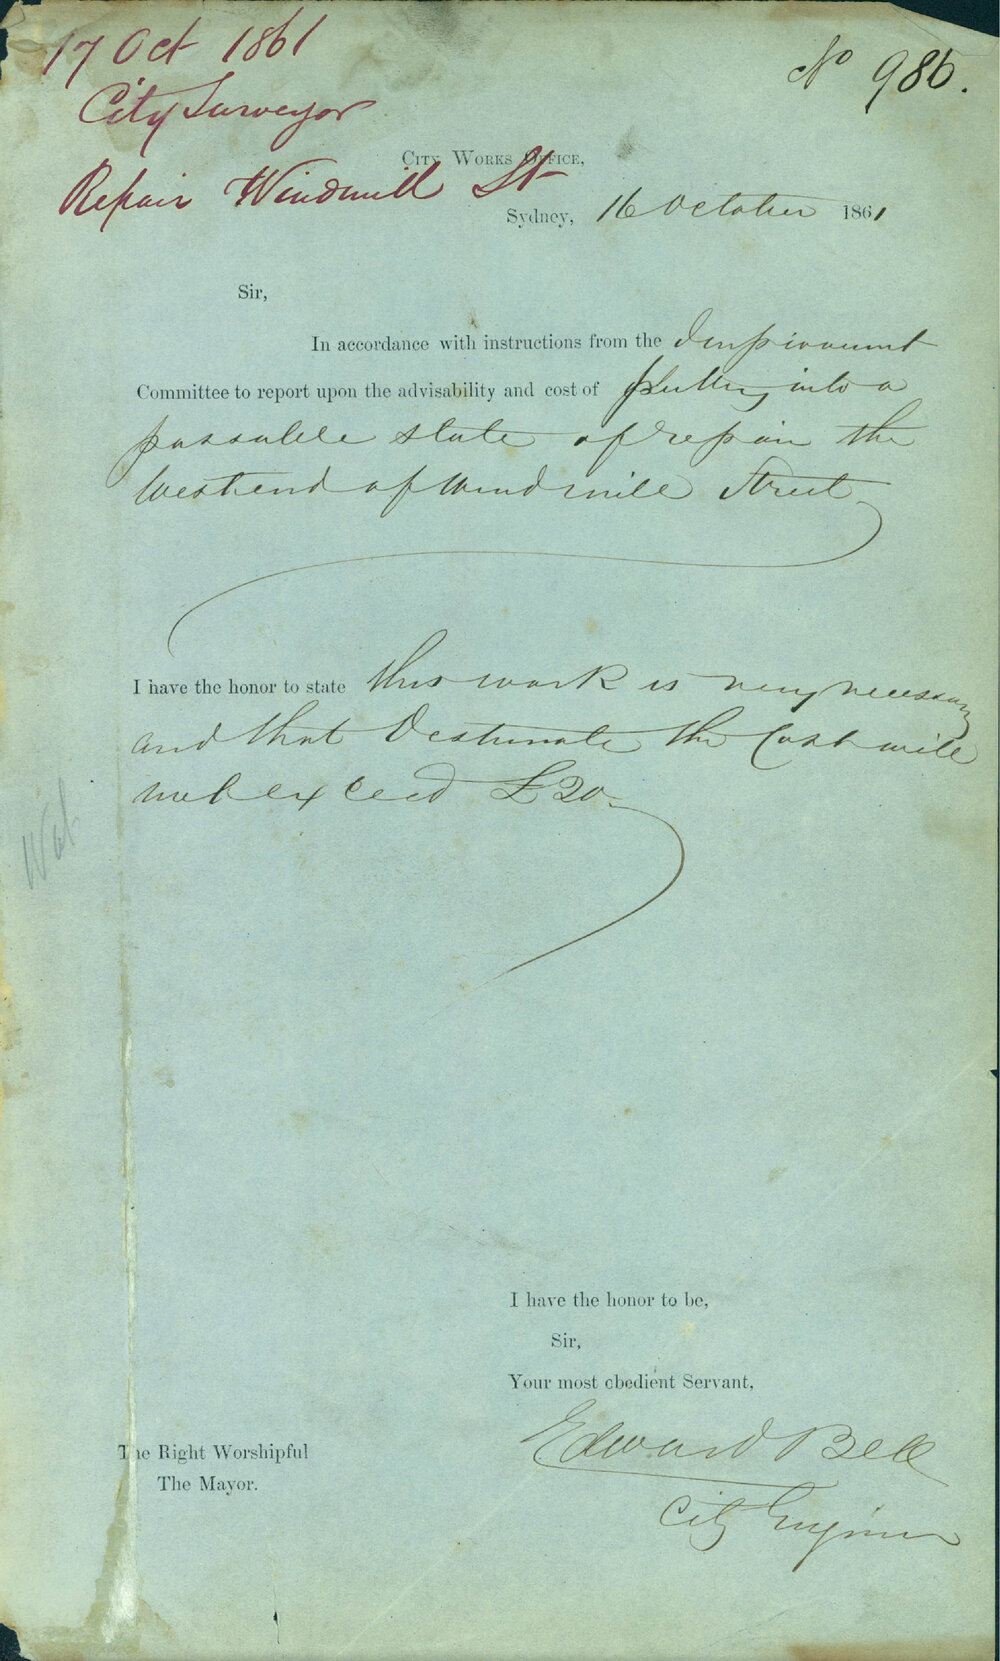 17 Oct 1861
City Surveyor
Repair Windmill St
No 986.
City Works Office,
Sydney, 16 October 1861
Sir,
In accordance with instructions from the Improvement
Committee to report upon the advisability and cost of putting into a
passable state of repair the
West end of Windmill Street
I have the honor to state this work is very necessary
and that I estimate the Cost will
not exceed £20
I have the honor to be,
Sir,
Your most obedient Servant,
Edward Bell
City Engineer
The Right Worshipful
The Mayor.